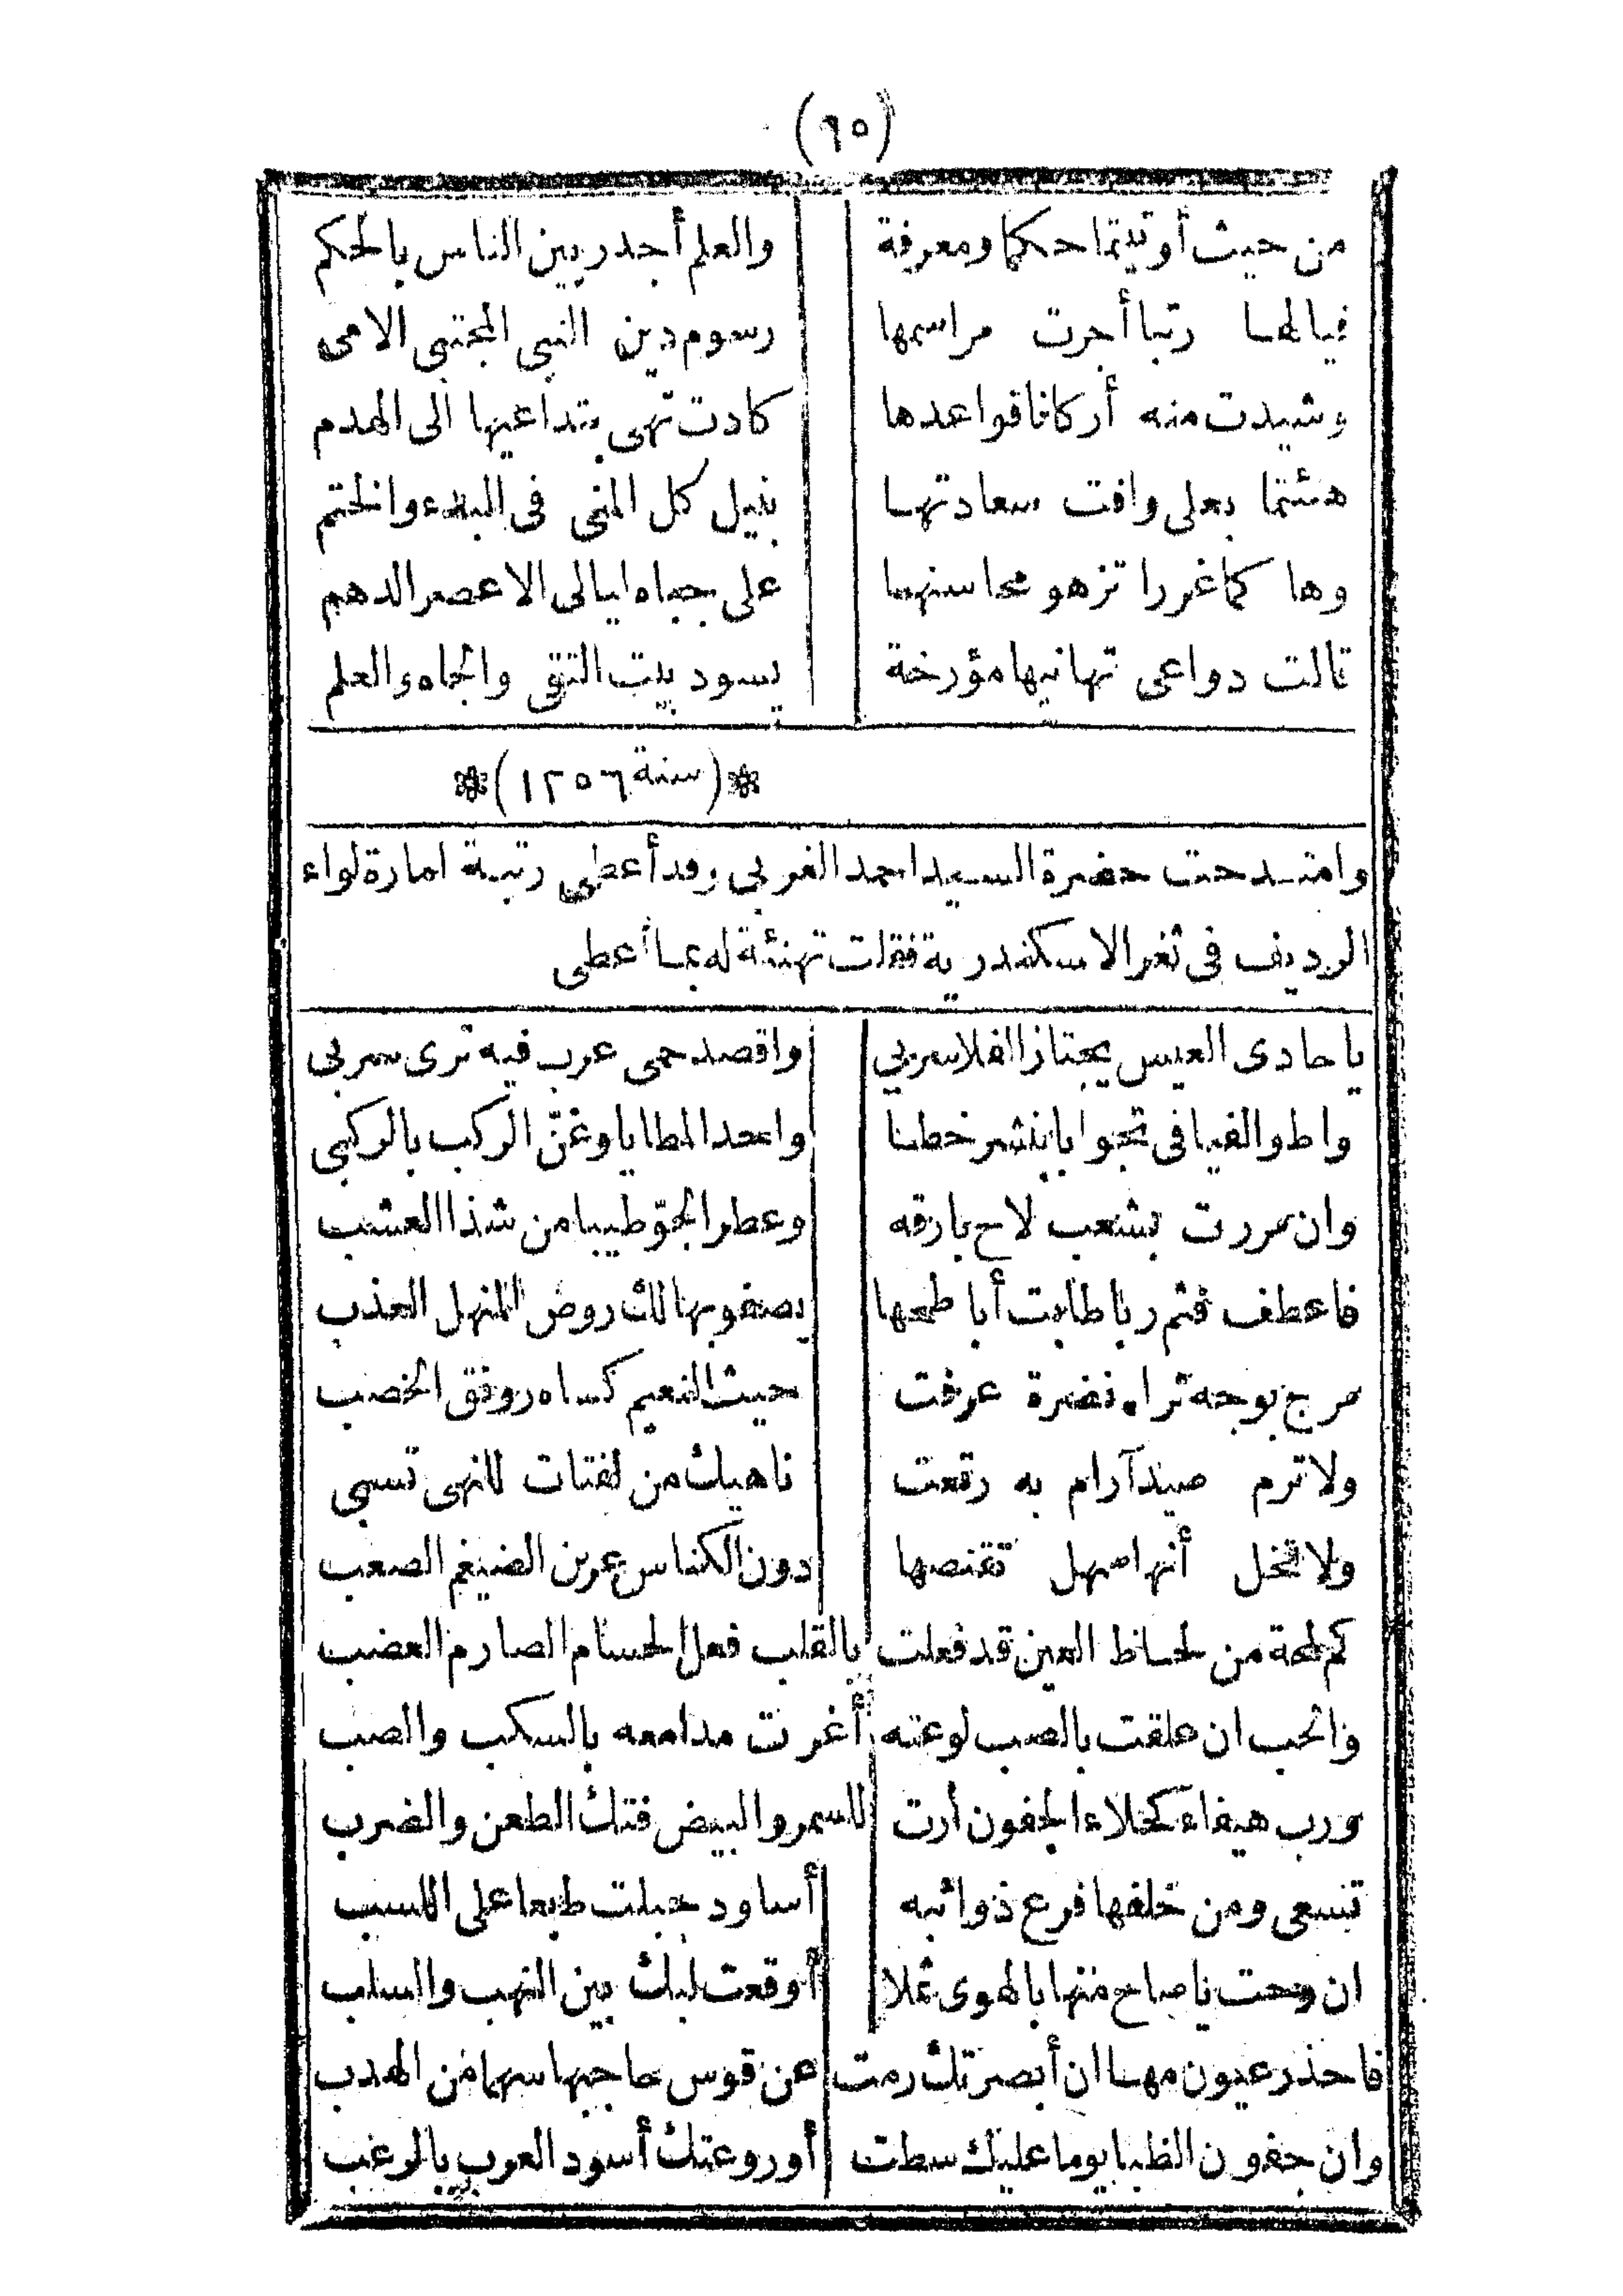 (٦٥)
من حيث أوتيتما حكما ومعرفة والعلم أجدر بين الناس بالحكم
فيالها رتبا أجرت مراسمها رسوم دين النبي المجتبى الامى
وشيدت منه أركانا قواعدها كادت تهى بتداعيها الى الهدم
هنئتما بعلى وافت سعادتها بنيل كل المنى فى البدء والختم
وها كما غررا تزهو محاسنها على جباه ليالى الاعصر الدهم
تالت دواعى تهانيها مؤرخة يسود بيت التقى والجاه والعلم
❋(سنة ١٢٥٦)❋
وامتدحت حضرة السيد احمد الغربى وقد أعطى رتبة امارة لواء
الرديف فى ثغر الاسكندرية فقلت تهنئة له بما أعطى
يا حادى العيس يجتاز الفلا سربي واقصد حمى عرب فيه ترى سربى
واطو الفيافى تجوابا بنشر خطا واحد المطايا وغنّ الركب بالركبى
وان مررت بشعب لاح بارقه وعطر الجوّ طيبا من شذا العشب
فاعطف فثم ربا طابت أباطحها يصفو بها لك روض المنهل العذب
مرج بوجه ثراه نضرة عرفت حيث النعيم كساه رونق الخصب
ولا ترم صيد آرام به رتعت ناهيك من لفتات للنهى تسبى
ولا تخل أنها سهل تقنصها دون الكناس عرين الضيغم الصعب
كم لمحة من لحاظ العين قد فعلت بالقلب فعل الحسام الصارم العضب
والحب ان علقت بالصب لوعته أغرت مدامعه بالسكب والصب
ورب هيفاء كحلاء الجفون أرت للسمر والبيض فتك الطعن والضرب
تسعى ومن خلفها فرع ذوائبه أساود جبلت طبعا على اللسب
ان رحت يا صاح منها بالهوى ثملا أوقعت لبك بين النهب والسلب
فاحذر عيون مها ان أبصرتك رمت عن قوس حاجبها سهما من الهدب
وان جفون الظبا يوما عليك سطت أوروعتك أسود العرب بالرغب